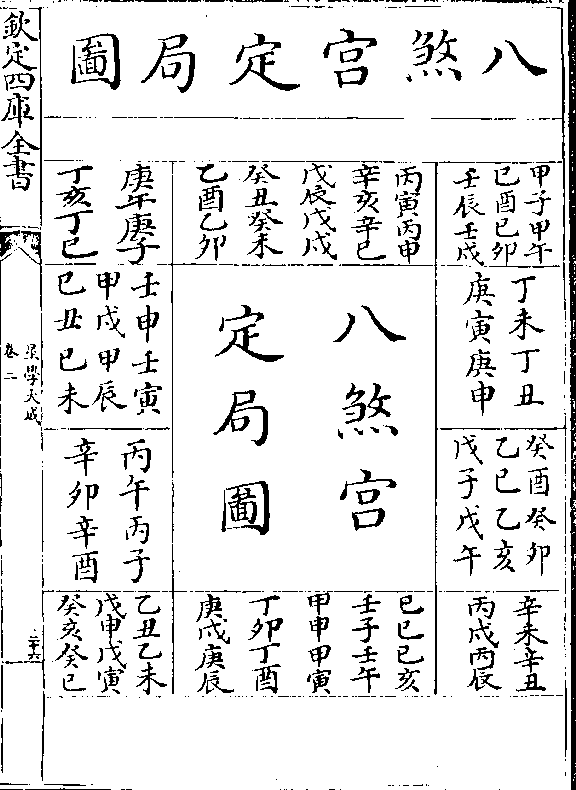 八煞宫定局圖
甲子甲午
己酉己卯
壬辰壬戌
丙寅丙申
辛亥辛巳
戊辰戊戌
癸丑癸未
乙酉乙卯
庚午庚子
丁亥丁巳
丁未丁丑
庚寅庚申
八煞宫
定局圖
壬申壬寅
甲戌甲辰
己丑己未
癸酉癸卯
乙巳乙亥
戊子戊午
丙午丙子
辛卯辛酉
辛未辛丑
丙戌丙辰
己巳己亥
壬子壬午
甲申甲寅
丁卯丁酉
庚戌庚辰
乙丑乙未
戊申戊寅
癸亥癸巳
欽定四庫全書
星學大成
卷二